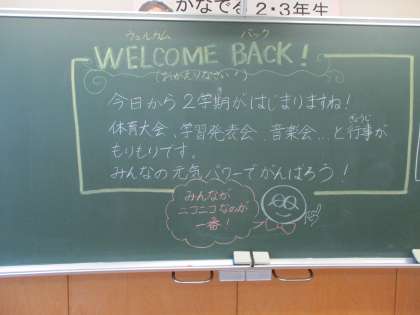 かなでる 2・3年生
ウェルカム バック
WELCOME BACK!
(おかえりなさい!)
今日から2学期がはじまりますね!
体育大会、学習発表会、音楽会…と行事が
ぎょうじ
もりもりです。
みんなの元気パワーでがんばろう!
みんなが
ニコニコなのが
一番!